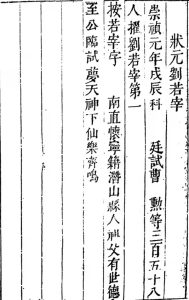 狀元劉若宰
崇禎元年戊辰科　廷試曹　勲等三百五十八
人擢劉若宰第一
按若宰字　南直懷寧籍潛山縣人祖父有世德
至公臨試夢天神下仙樂齊鳴